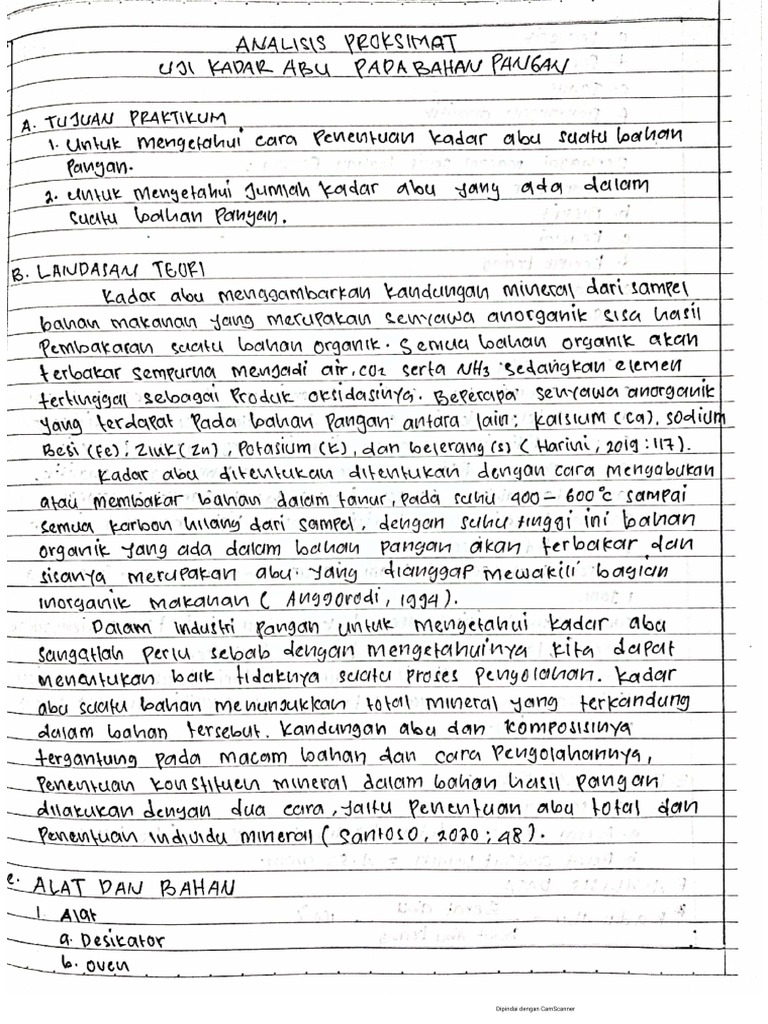 ANALISIS PROKSIMAT
UJI KADAR ABU PADA BAHAN PANGAN
A. TUJUAN PRAKTIKUM
1. Untuk mengetahui cara Penentuan kadar abu suatu bahan
Pangan.
2. Untuk mengetahui Jumlah kadar abu yang ada dalam
suatu bahan Pangan.
B. LANDASAN TEORI
Kadar abu menggambarkan kandungan mineral dari sampel
bahan makanan yang merupakan senyawa anorganik sisa hasil
Pembakaran suatu bahan organik. Semua bahan organik akan
terbakar sempurna menjadi air, CO2 serta NH3 sedangkan elemen
tertinggal sebagai Produk oksidasinya. Beperapa senyawa anorganik
yang terdapat Pada bahan Pangan antara lain: Kalsium (Ca), Sodium
Besi (Fe), Zink (Zn), Potasium (K), dan belerang (S) (Harini, 2019:117).
Kadar abu ditentukan ditentukan dengan cara mengabukan
atau membakar bahan dalam tanur, pada suhu 400-600°C sampai
semua karbon hilang dari sampel, dengan suhu tinggi ini bahan
organik yang ada dalam bahan pangan akan terbakar dan
sisanya merupakan abu yang dianggap mewakili bagian
inorganik makanan (Anggorodi, 1994).
Dalam industri pangan untuk mengetahui kadar abu
sangatlah perlu sebab dengan mengetahuinya kita dapat
menentukan baik tidaknya suatu proses pengolahan. Kadar
abu suatu bahan menunjukkan total mineral yang terkandung
dalam bahan tersebut. Kandungan abu dan komposisinya
tergantung pada macam bahan dan cara Pengolahannya,
Penentuan konstituen mineral dalam bahan hasil pangan
dilakukan dengan dua cara, yaitu Penentuan abu total dan
Penentuan individu mineral (Santoso, 2020:48).
C. ALAT DAN BAHAN
1. Alat
a. Desikator
b. Oven
Dipindai dengan CamScanner